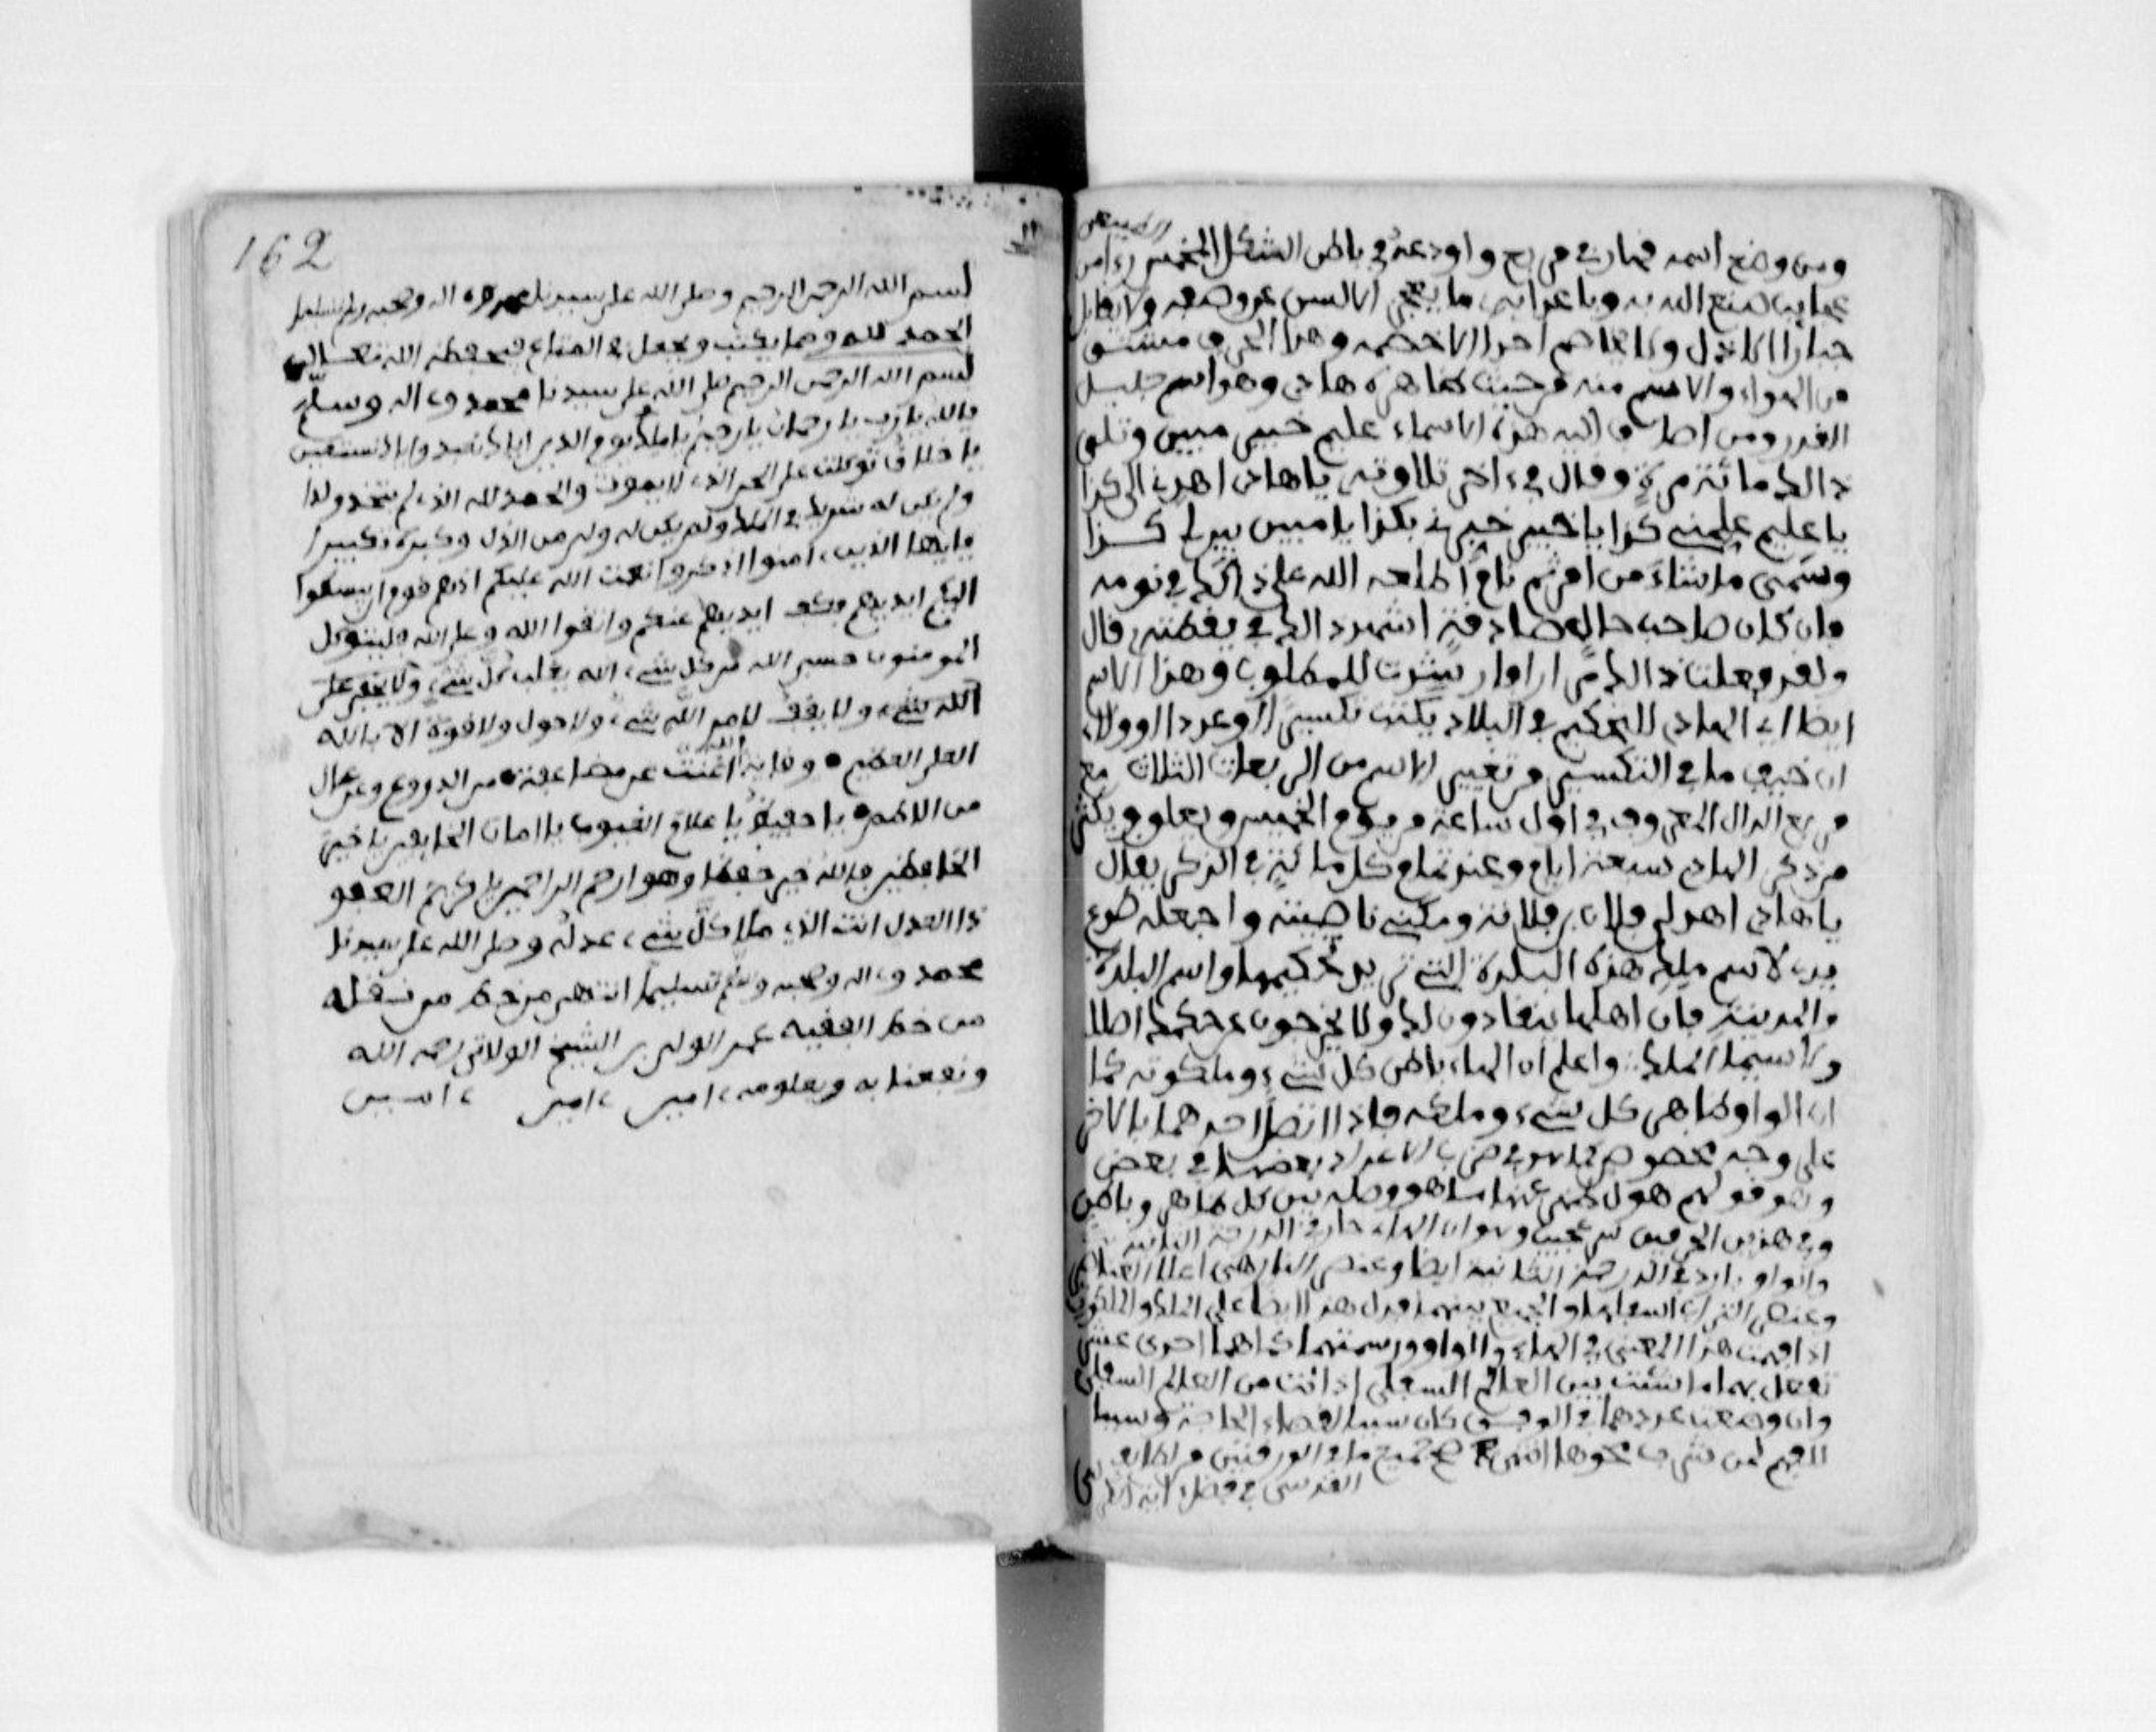 ومن وضع اسمه في مربع واودعه في باطن الشكل المخمس رءا من
عجايب صنع الله به وباعدايه ما يعجز الالسن عن وصفه ولا يقابل
جبارا الا ذل ولا يخاصم احدا الا خصمه وهذا الحرف مشتق
من الهواء والاسم منه من حيث ظاهره هادي وهو اسم جليل
القدر ومن اضاف اليه هذه الاسماء عليم خبير مبين وتلى
ذالك مائة مرة وقال في ءاخر تلاوته يا هادي اهدني الى كذا
يا عليم علمني كذا يا خبير خبرني بكذا يا مبين بين لي كذا
وسمى ما شاء من امر ثم نام اطلعه الله على ذالك في نومه
وان كان صاحب حال صادقة اشهد ذالك في يقظته قال
ولقد فعلت ذالك مرارا وارشدت للمطلوب وهذا الاسم
ايضا اي الهادي للتحكيم في البلاد يكتب تكسيرا او عددا او ولاء
ان خيف ما في التكسير من تغيير الاسم من المربعات الثلاث مع
مربع الدال المعروف في اول ساعة من يوم الخميس ويعلق ويكثر
من ذكر الهادي سبعة ايام وعند تمام كل مائة في الذكر يقال
يا هادي اهد لي فلان بن فلانة ومكني ناصيته واجعله طوع
يدي لاسم ملك هذه البلدة التي تريد تحكيمها واسم البلدة
والمدينة فان اهلها ينقادون لك ولا يخرجون عن حكمك اصلا
ولا سيما الملك واعلم ان الهاء باطن كل شيء وملكوته كما
ان الواو ظاهر كل شيء وملكه فاذا اتصل احدهما بالاخر
على وجه مخصوص كما هو في ضرب الاعداد بعضها في بعض
وهو قولهم هو ل ظهر عنها ما هو وصلة بين كل ظاهر وباطن
وفي هذين الحرفين سر عجيب وهو ان الهاء حار في الدرجة الثانية
والواو بارد في الدرجة الثانية ايضا وعنصر النار هي اعلا العناصر
وعنصر التراب اسفلها والجمع بينهما يدل هذا ايضا على الملك والملكوت
اذا فهمت هذا المعنى في الهاء والواو ورسمتهما كما هما احدى عشر
تفعل بهما ما شئت بين العالم السفلي اذ انت من العالم السفلي
وان وضعت عددهما في الوفق كان سببا لقضاء الحاجة وسببا
للفهم لمن شرب محوها انتهى جميع ما في الورقتين من
القدسي في فضل ءاية الكرسي
162
بسم الله الرحمن الرحيم وصلى الله على سيدنا محمد وءاله وصحبه وسلم تسليما
الحمد لله ومما يكتب ويجعل في المتاع فيحفظه الله تعالى
بسم الله الرحمن الرحيم صلى الله على سيدنا محمد وءاله وسلم
يا الله يا رب يا رحمان يا رحيم يا ملك يوم الدين اياك نعبد واياك نستعين
يا خلاق توكلت على الحي الذي لا يموت والحمد لله الذي لم يتخذ ولدا
ولم يكن له شريك في الملك ولم يكن له ولي من الذل وكبره تكبيرا
يا ايها الذين ءامنوا اذكروا نعمت الله عليكم اذ هم قوم ان يبسطوا
اليكم ايديهم فكف ايديهم عنكم واتقوا الله وعلى الله فليتوكل
المومنون حسبي الله من كل شيء الله يغلب كل شيء ولا يخفى على
الله شيء ولا يقف لامر الله شيء ولا حول ولا قوة الا بالله
العلي العظيم وقاية الله اغنت عن مضاعفة من الدروع وعن عال
من الاطم يا حفيظ يا علام الغيوب يا امان الخايفين يا خير
الحافظين فالله خير حفظا وهو ارحم الراحمين يا كريم العفو
ذا العدل انت الذي ملأ كل شيء عدله وصلى الله على سيدنا
محمد وءاله وصحبه وسلم تسليما انتهى من خط من نقله
من خط الفقيه محمد الولي بن الشيخ الولاتي رحمه الله
ونفعنا به وبعلومه ءامين ءامين ءامين